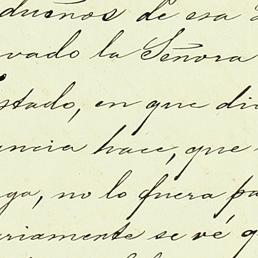 dueños de esa
vado la Señora
stado, en que di
ncia hace, que
ga, no lo fuera pa
riamente se vé q